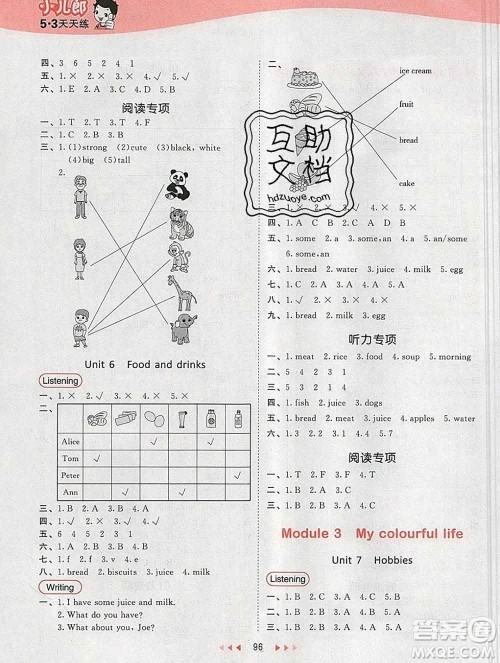 小儿郎
5·3天天练
四、3 6 5 2 4 1
五、1. × 2. × 3. ✓ 4. × 5. ✓
六、1. B 2. A 3. A 4. B
阅读专项
一、1. T 2. T 3. T 4. F
二、1. C 2. B 3. B
三、1. (1)strong (2)cute (3)black, white
(4)big (5)small
2. (1)thin (2)tall
Unit 6 Food and drinks
Listening
一、1. × 2. ✓ 3. × 4. × 5. ×
二、
Alice ✓ ✓
Tom ✓
Peter ✓
Ann ✓ ✓
三、1. B 2. A 3. B 4. A 5. A
四、1. ✓ 2. × 3. ✓ 4. ✓ 5. ×
五、1. B 2. A 3. A 4. C 5. B
六、1. B 2. A 3. B 4. A 5. C
七、1. f 2. e 3. a 4. c 5. b 6. d
八、1. bread 2. biscuits 3. juice 4. milk
Writing
一、1. I have some juice and milk.
2. What do you have?
3. What about you, Joe?
二、
ice cream
fruit
bread
cake
互助
文档
hdzuoye.com
三、1. × 2. × 3. ✓ 4. × 5. ✓
四、1. A C B 2. C A D B
五、1. some 2. a 3. some 4. an/some
6. some/an
六、1. bread 2. water 3. juice 4. milk 5. egg
七、1. C 2. A 3. A 4. B 5. A
八、1. ✓ 2. × 3. × 4. ✓ 5. ✓
九、1. bread 2. milk 3. egg
十、1. B 2. A 3. C 4. A
听力专项
一、1. meat 2. rice 3. food 4. soup 5. morning
二、5 4 2 1 3
三、5 2 1 4 3
四、1. fish 2. juice 3. dogs
五、1. bread 2. meat 3. juice 4. apples 5. water
六、1. B 2. B 3. C 4. B 5. C
阅读专项
一、1. T 2. F 3. F 4. T
二、1. B 2. A 3. A
三、1. B 2. C 3. A
Module 3 My colourful life
Unit 7 Hobbies
Listening
一、1. B 2. A 3. A 4. B 5. A
二、1. A 2. A 3. B 4. A 5. B
三、1. A 2. B 3. A 4. B 5. B
96
答案圈
MXQE.COM